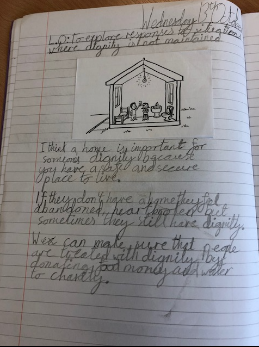 Wednesday
L.O: to explore responses to situations
where dignity is not maintained
I think a home is important for
someones dignity because
you have a safe and secure
place to live.
If they don't have a home they feel
abandoned, heartbroken but
sometimes they still have dignity.
We can make sure that people
are treated with dignity by
donateing food money and water
to charity.